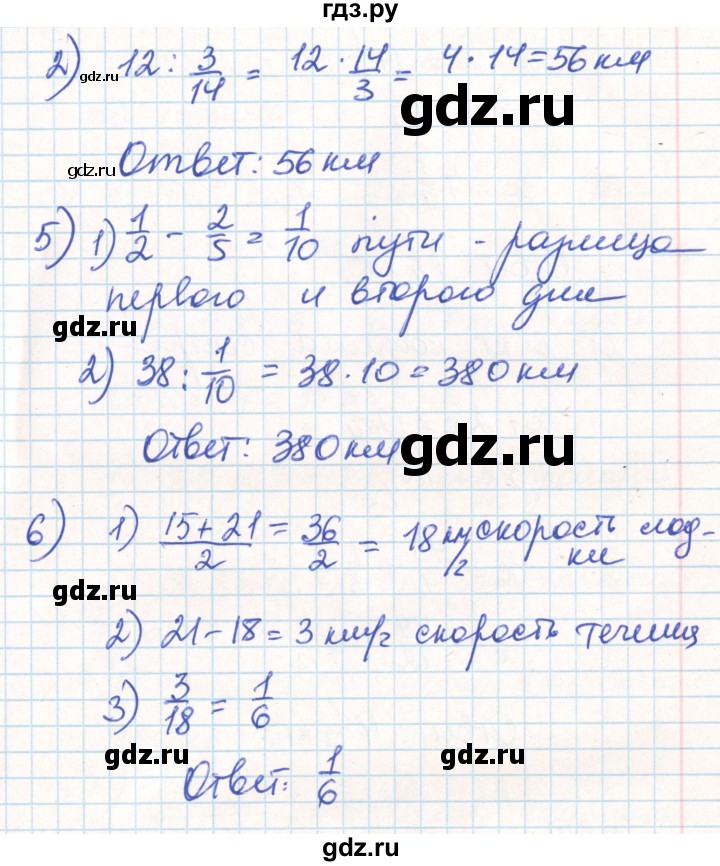 гдз.ру
2) 12 : 3/14 = 12 · 14/3 = 4 · 14 = 56 км
gdz.ru
gdz.ru
gdz.ru
Ответ: 56 км
5) 1) 1/2 - 2/5 = 1/10 пути - разница
первого и второго дня
gdz.ru
2) 38 : 1/10 = 38 · 10 = 380 км
Ответ: 380 км
gdz.ru
6) 1) (15 + 21)/2 = 36/2 = 18 км/г скорость лод-
ки
gdz.ru
2) 21 - 18 = 3 км/г скорость течения
3) 3/18 = 1/6
gdz.ru
gdz.ru
Ответ: 1/6